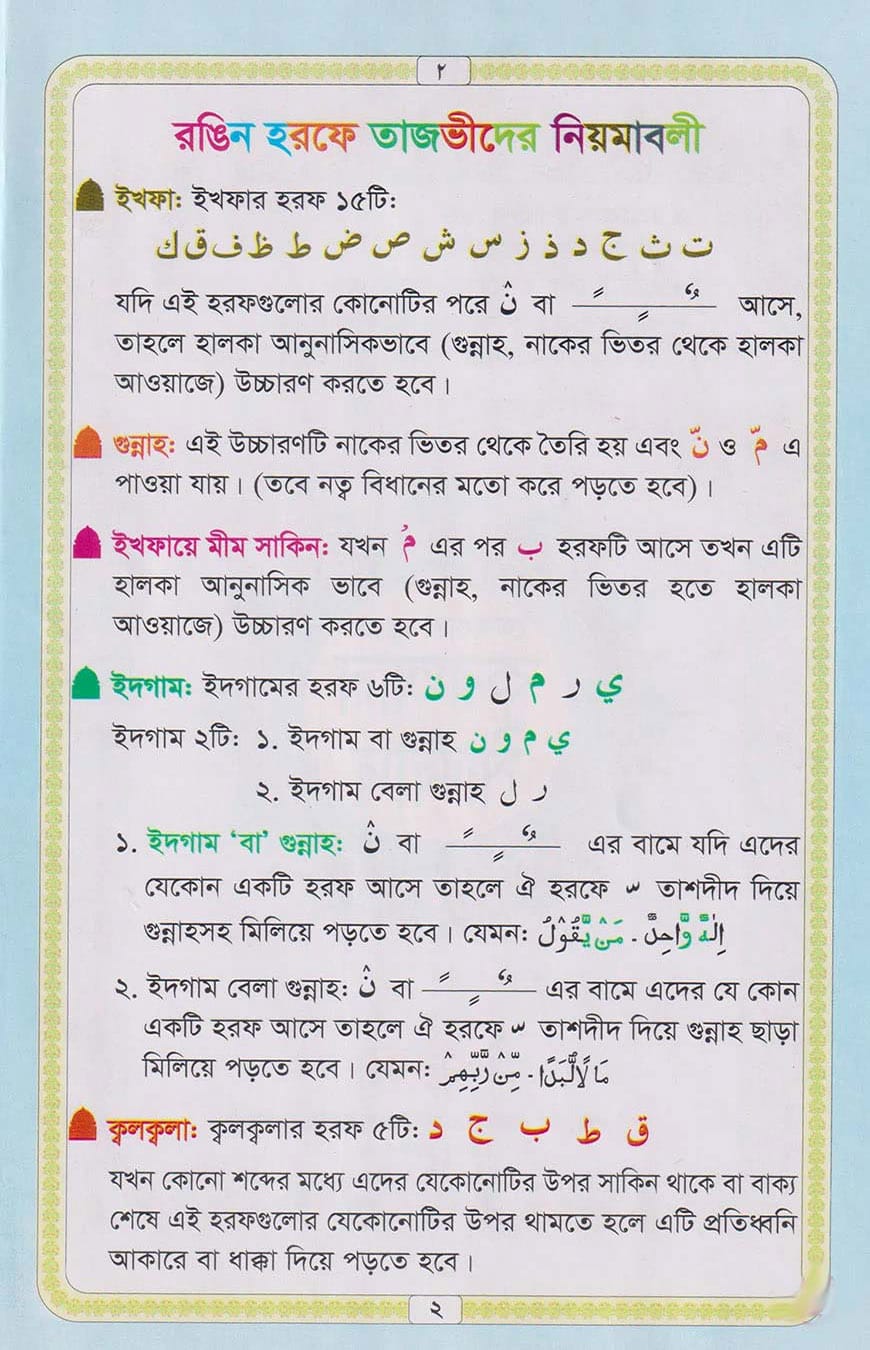 ٢
রঙিন হরফে তাজভীদের নিয়মাবলী
ইখফা: ইখফার হরফ ১৫টি:
ت ث ج د ذ ز س ش ص ض ط ظ ف ق ك
যদি এই হরফগুলোর কোনোটির পরে نْ বা ـًـٍـٌ আসে,
তাহলে হালকা আনুনাসিকভাবে (গুন্নাহ, নাকের ভিতর থেকে হালকা
আওয়াজে) উচ্চারণ করতে হবে।
গুন্নাহ: এই উচ্চারণটি নাকের ভিতর থেকে তৈরি হয় এবং نّ ও مّ এ
পাওয়া যায়। (তবে নত্ব বিধানের মতো করে পড়তে হবে)।
ইখফায়ে মীম সাকিন: যখন مْ এর পর ب হরফটি আসে তখন এটি
হালকা আনুনাসিক ভাবে (গুন্নাহ, নাকের ভিতর হতে হালকা
আওয়াজে) উচ্চারণ করতে হবে।
ইদগাম: ইদগামের হরফ ৬টি: ي ر م ل و ن
ইদগাম ২টি: ১. ইদগাম বা গুন্নাহ ي م و ن
২. ইদগাম বেলা গুন্নাহ ر ل
১. ইদগাম ‘বা’ গুন্নাহ: نْ বা ـًـٍـٌ এর বামে যদি এদের
যেকোন একটি হরফ আসে তাহলে ঐ হরফে ّ তাশদীদ দিয়ে
গুন্নাহসহ মিলিয়ে পড়তে হবে। যেমন: اِلٰهٌ وَّاحِدٌ - مَنْ يَّقُوْلُ
২. ইদগাম বেলা গুন্নাহ: نْ বা ـًـٍـٌ এর বামে এদের যে কোন
একটি হরফ আসে তাহলে ঐ হরফে ّ তাশদীদ দিয়ে গুন্নাহ ছাড়া
মিলিয়ে পড়তে হবে। যেমন: مَالًا لُّبَدًا - مِّنْ رَّبِّهِمْ
ক্বলক্বলা: ক্বলক্বলার হরফ ৫টি: ق ط ب ج د
যখন কোনো শব্দের মধ্যে এদের যেকোনোটির উপর সাকিন থাকে বা বাক্য
শেষে এই হরফগুলোর যেকোনোটির উপর থামতে হলে এটি প্রতিধ্বনি
আকারে বা ধাক্কা দিয়ে পড়তে হবে।
২